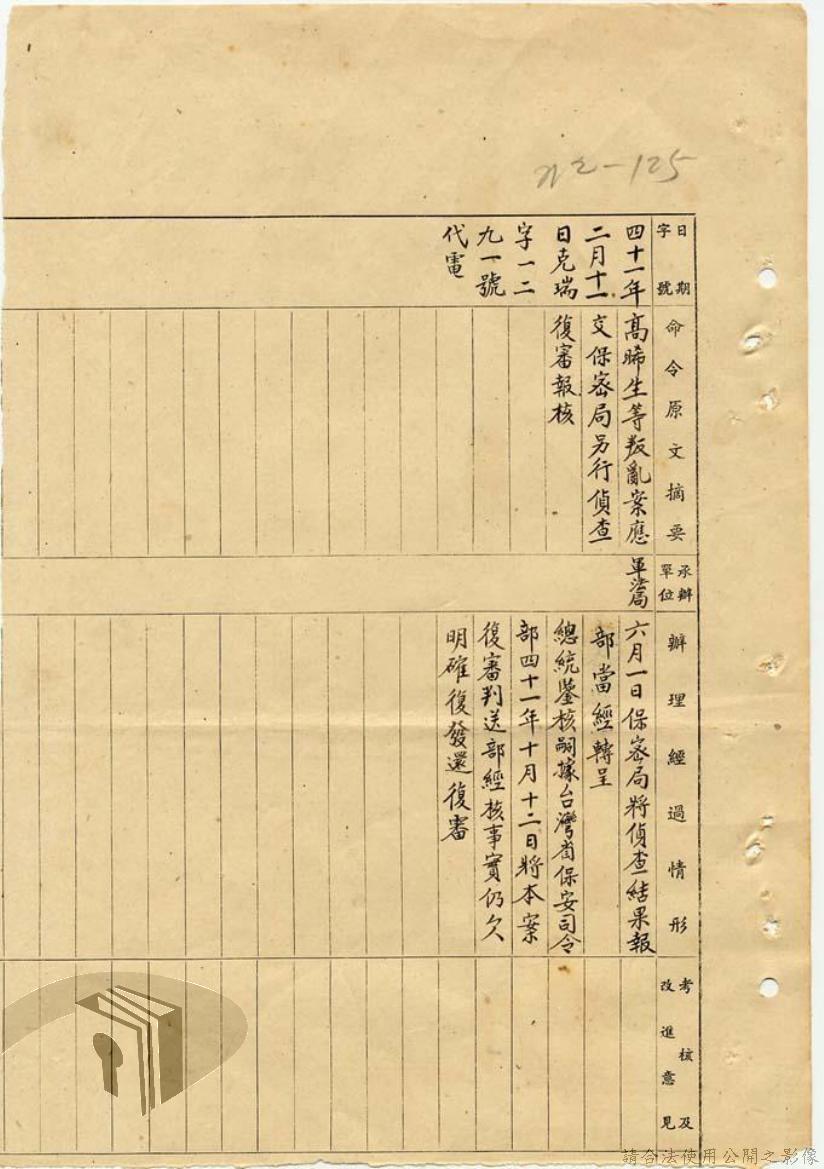 125
日期
字號
命令原文摘要
承辦
單位
辦理經過情形
考核及
改進意見
四十一年
二月十一
日克瑞
字一二
九一號
代電
高晞生等叛亂案應
交保密局另行偵查
復審報核
軍法局
六月一日保密局將偵查結果報
部當經轉呈
總統鑒核嗣據台灣省保安司令
部四十一年十月十二日將本案
復審判送部經核事實仍欠
明確復發還復審
請合法使用公開之影像